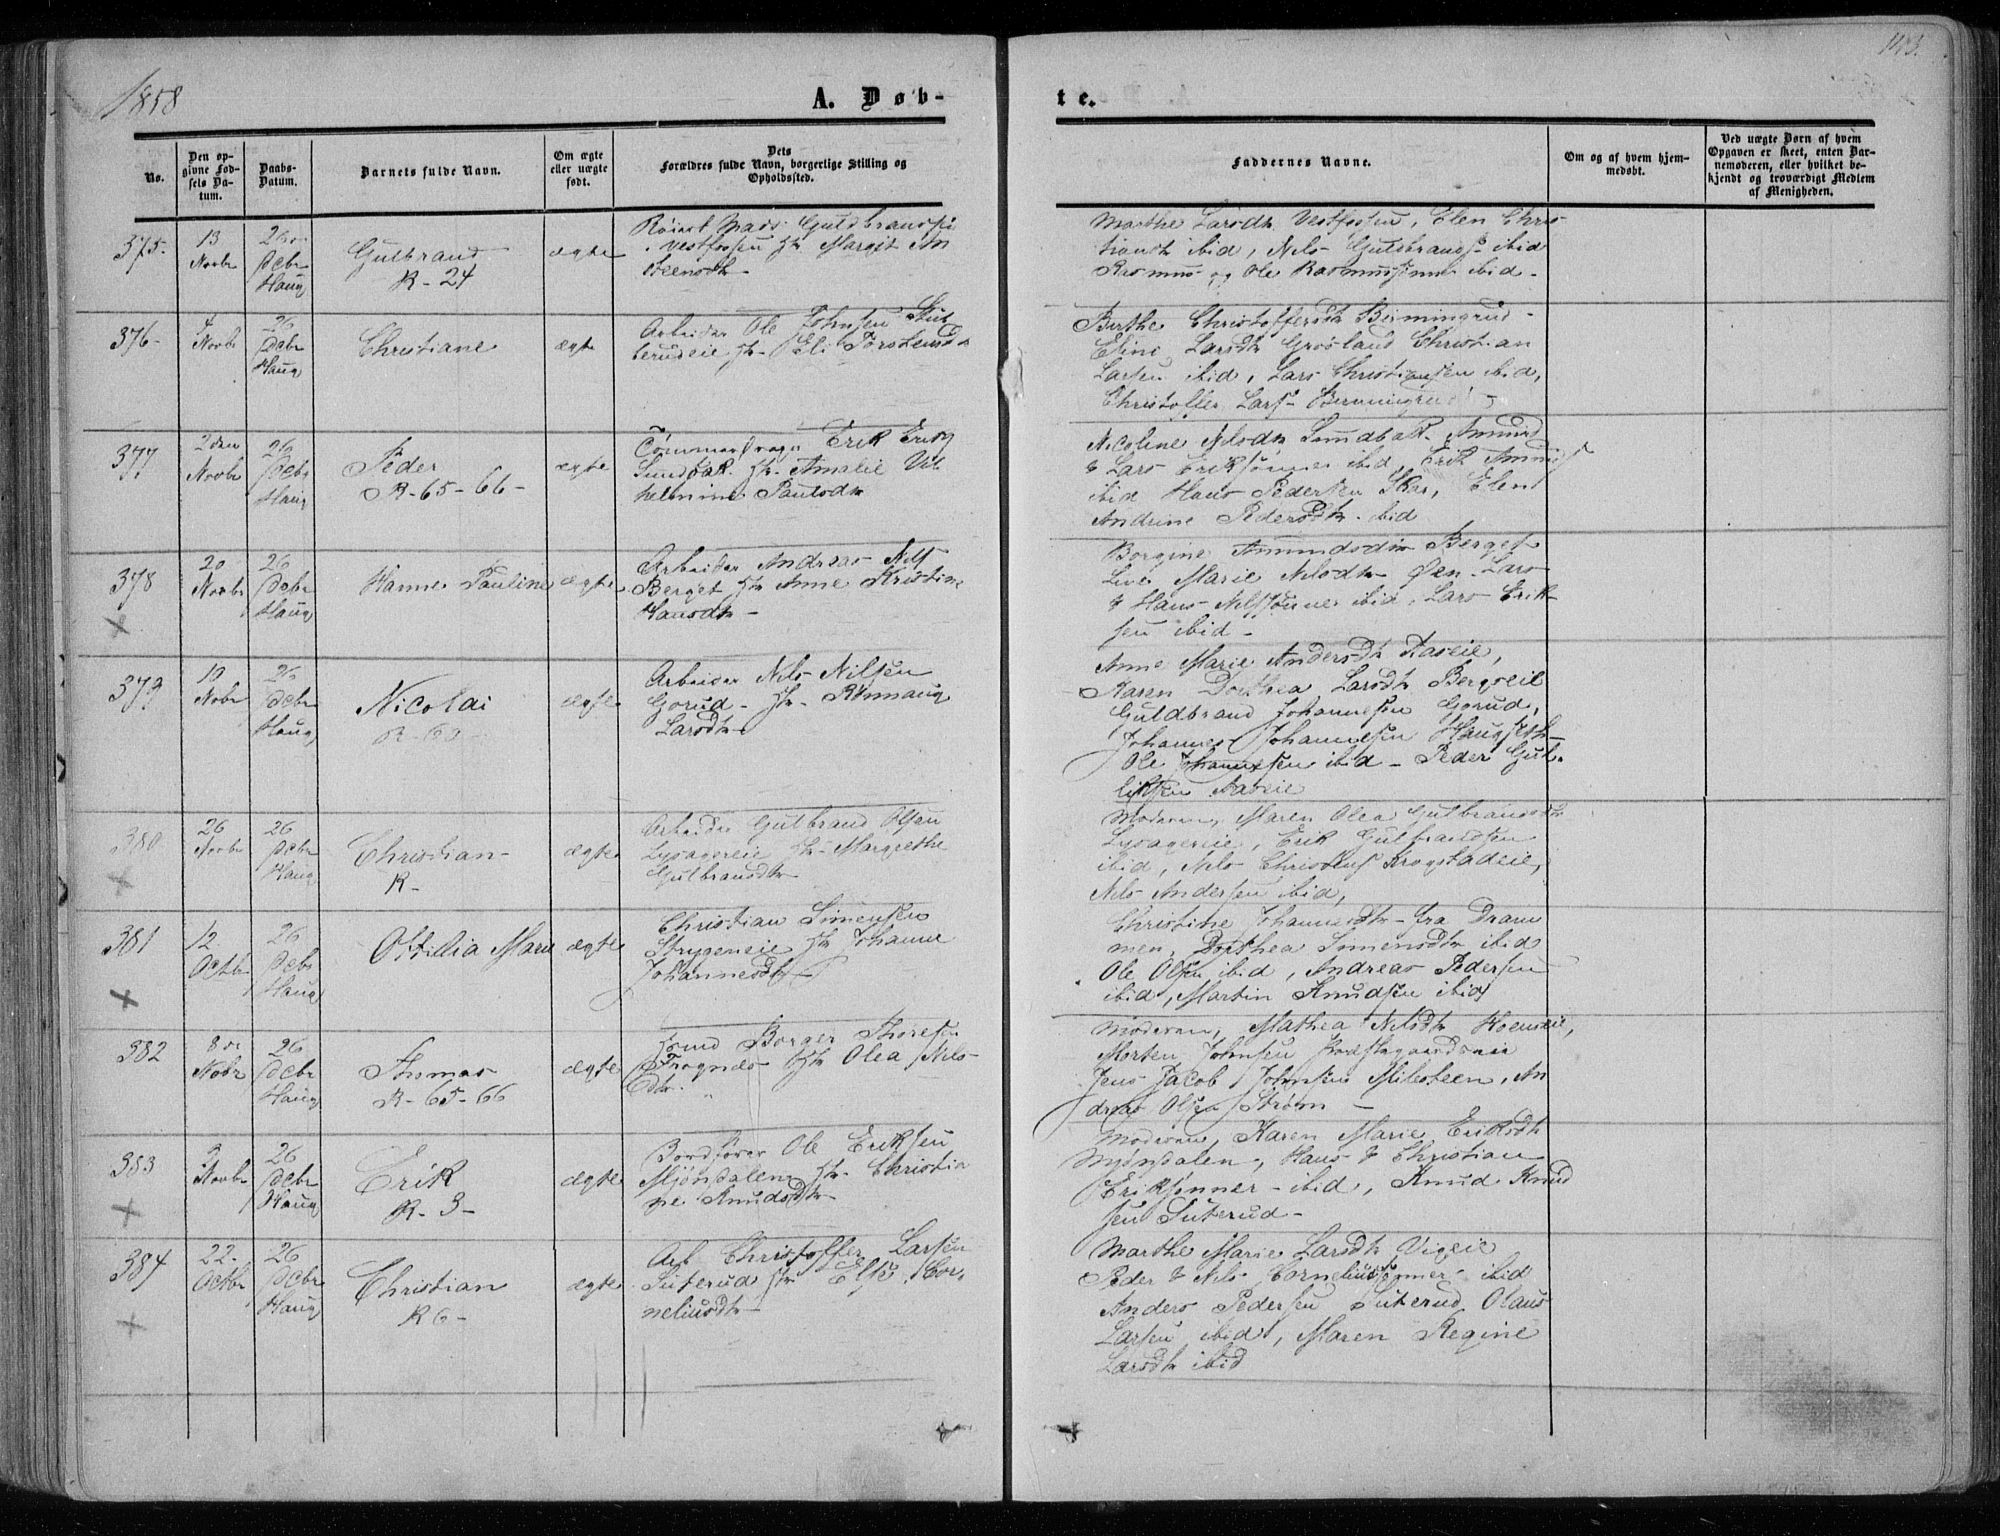 1858
A. Døb-
te.
143.
No.
Den op-
givne Fød-
sels Da-
tum.
Daabs-
Datum.
Barnets fulde Navn.
Om ægte
eller uægte
født.
Dets
Forældres fulde Navn, borgerlige Stilling og
Opholdssted.
Faddernes Navne.
Om og af hvem hjem-
medøbt.
Ved uægte Børn af hvem
Opgaven er skeet, enten Bar-
nemoderen, eller hvilket be-
kjendt og troværdigt Medlem
af Menigheden.
375-
13
Novbr
26
Dcbr
Haug
Gulbrand
R-24
ægte
Mads Guldbrandsen
Vestfossen Margit An
Marthe Larsdtr Vestfossen, Elen Chris-
tiansdtr ibid, Nils Gulbrands ibid
Rasmus og Ole Rasmussønner ibid-
376-
4
Novbr
26
Dcbr
Haug
Christiane
ægte
Arbeider Ole Johnsen
Eli Torstensdtr
Berthe Christoffersdtr Bermingrud-
Eline Larsdtr Grosland Christian
Larsen ibid, Lars Christiansen ibid,
Christoffer Lars- Bermingrud
377
2den
Novbr
26
Dcbr
Haug
Peder
R-65-66-
ægte
Erik Eriks
Sundbak Amalie Vil
helmine Paulsdtr
Nicoline Nilsdtr Sundbak. Amund
& Lars Eriksønner ibid, Erik Amunds
ibid Hans Pedersen Skar, Elen
Andrine Pedersdtr ibid
378
20
Novbr
26
Dcbr
Haug
Hanne Pauline
ægte
Arbeider Andreas Nils
Berget Anne Kristine
Hansdtr-
Borgine Amundsdtr Berget
Live Marie Nilsdtr Øen. Lars
& Hans Nilssønner ibid, Lars Erik-
sen ibid-
379
10
Nobr
26
Dcbr
Haug
Nicolai
ægte
Arbeider Nils Nilsen
Gorud- Rønnaug
Larsdtr
Anne Marie Andersdtr Aaseie,
Karen Dorthea Larsdtr
Guldbrand Johannesen Gorud,
Johannes Johannesen Haugseth-
Ole Johannessen ibid- Peder Gul-
liksen Aaseie
380
26
Novbr
26
Dcbr
Haug
Christian-
R-
ægte
Arbeider Gulbrand Olsen
Lysagereie Margrethe
Gulbrandtr
Moderen, Maren Olea Gulbransdtr
Lysagereie, Erik Gulbrandsen
ibid, Nils Krogstadeie,
Nils Andersen ibid,
381
12
Octbr
26
Dcbr
Haug
Ottilia Marie
ægte
Christian Simensen
Strygeneie Johanne
Johannesdtr-
Christine Johannesdtr- fra Dram
men, Dorthea Simensdtr ibid
Ole Olsen ibid, Andreas Pedersen
ibid, Martin Knudsen ibid
382
8de
Nobr
26
Dcbr
Haug
Thomas
R-65-66
ægte
Borger Thoresen
Frognes Olea Nils-
dtr.
Moderen, Mathea Nilsdtr Hoenseie,
Morten Johnsen
Jens Jacob Johnsen Milesteen, An
dreas Olsen Strøm-
383
3
Novbr
26
Dcbr
Haug
Erik
R-3-
ægte
Bordfører Ole Eriksen
Mjøndalen Christia
ne Knudsdtr-
Moderen, Karen Marie Eriksdtr
Mjøndalen, Hans & Christian
Eriksønner- ibid, Knud Knud
sen Suterud-
384
22-
Octbr
26
Dcbr
Haug
Christian
R6-
ægte
Arb Christoffer Larsen
Suterud Else Cor-
neliusdtr-
Marthe Marie Larsdtr Vigeie
Peder & Nils Corneliussønner ibid
Anders Pedersen Suterud Olaus
Larsen ibid, Maren Regine
Larsdtr ibid